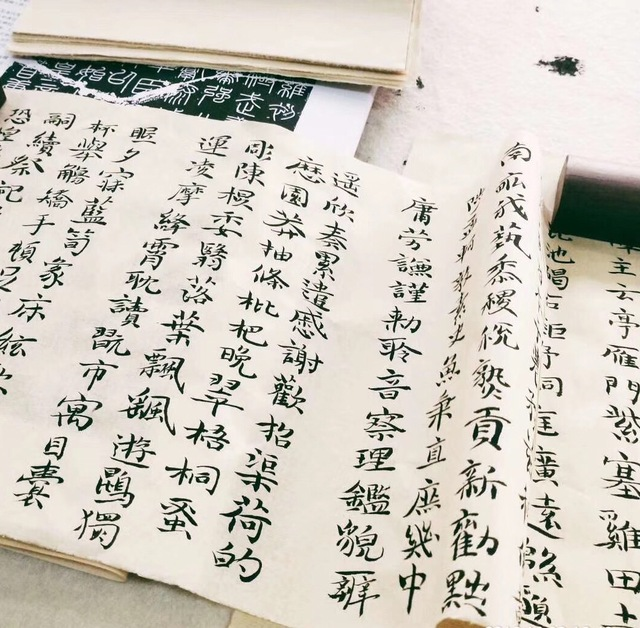 主云亭雁門紫塞雞田
池碣石鉅野洞庭曠遠緜邈
南畝我藝黍稷稅熟貢新勸黜
陟孟軻敦素史魚秉直庶幾中
庸勞謙謹勑聆音察理鑑貌辨
遥欣奏累遣慼謝歡招渠荷的
園莽抽條枇杷晚翠梧桐蚤
彫陳根委翳落葉飄颻遊鵾獨
運凌摩絳霄耽讀翫市寓目囊
眠夕寐藍筍象床絃歌
杯舉觴矯手頓足
嗣續祭祀
恐惶